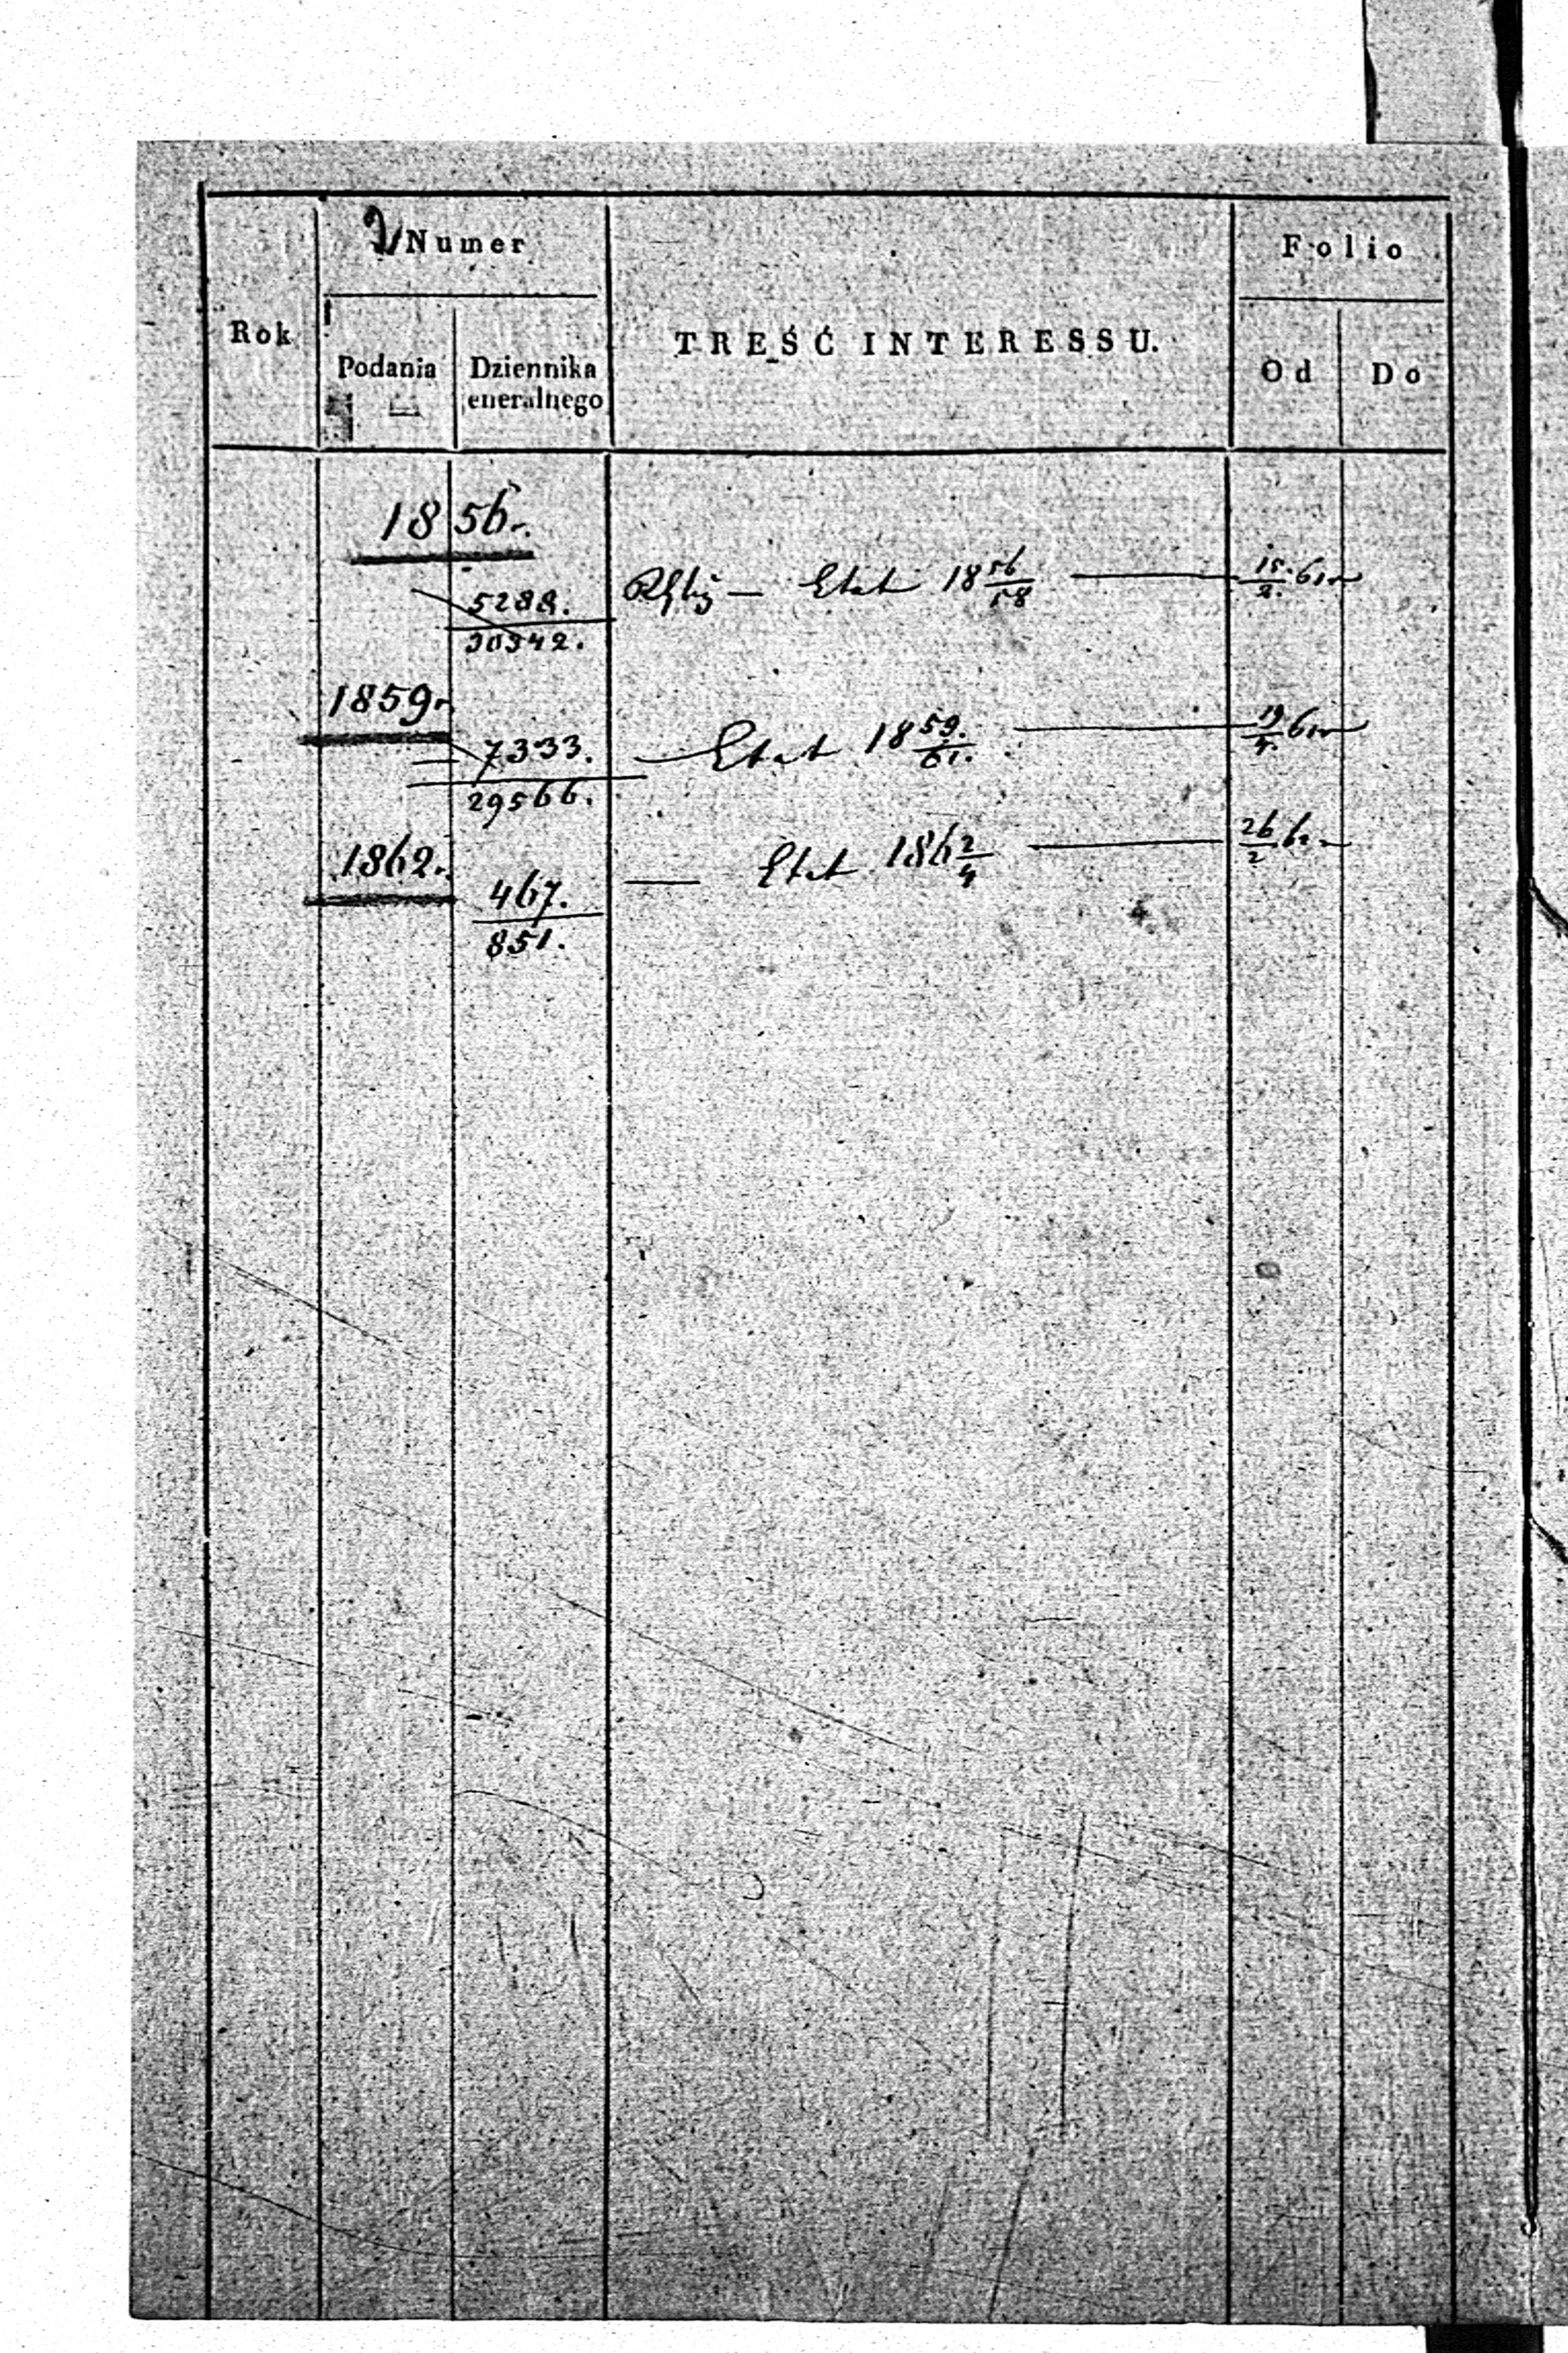 Rok
Numer
Podania
Dziennika
eneralnego
TREŚĆ INTERESSU.
Folio
Od
Do
1856.
5288.
30342.
Etat 18 56/58
15/2. 61
1859.
7333.
29566.
Etat 18 59./61.
19/4. 61
1862.
467.
851.
Etat 186 2/4
26/2 62